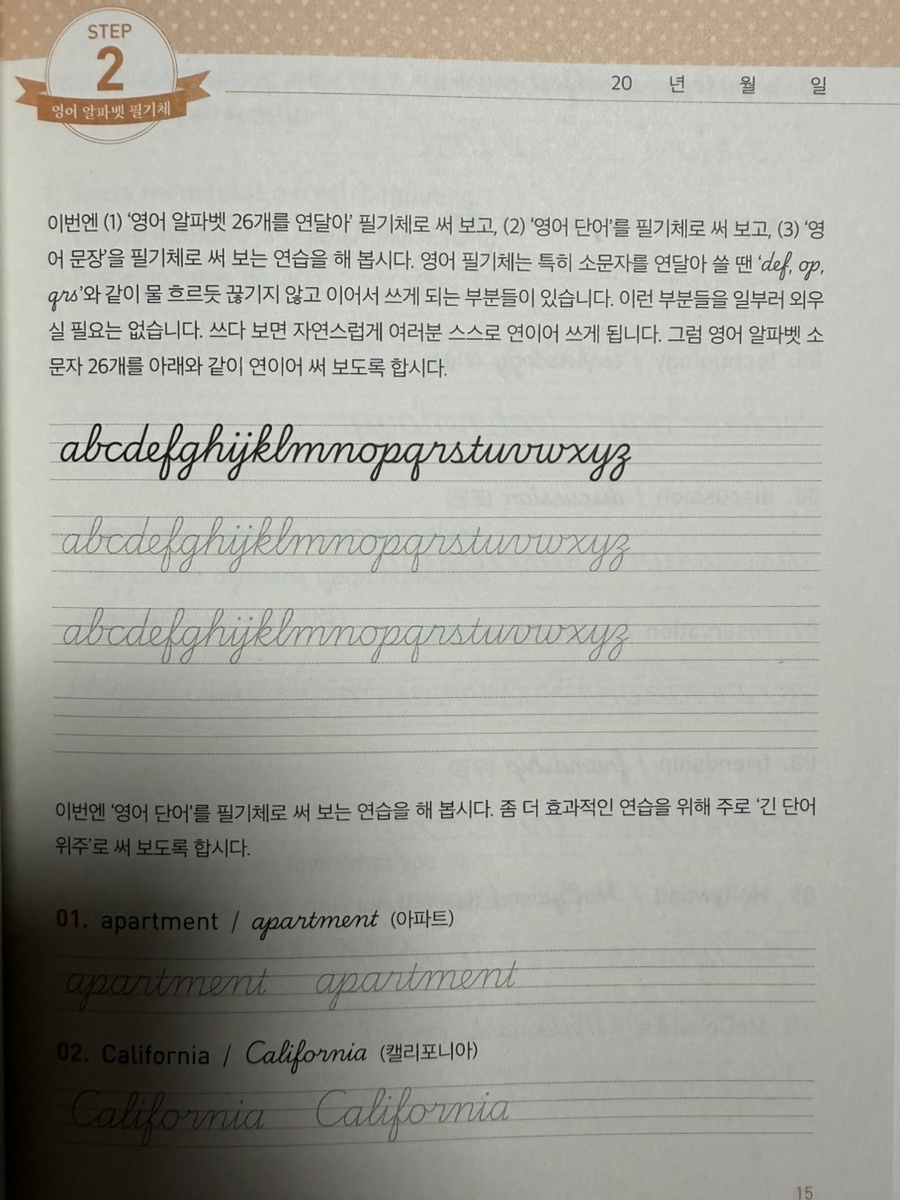 STEP
2
영어 알파벳 필기체
20 년 월 일
이번엔 (1) ‘영어 알파벳 26개를 연달아’ 필기체로 써 보고, (2) ‘영어 단어’를 필기체로 써 보고, (3) ‘영
어 문장’을 필기체로 써 보는 연습을 해 봅시다. 영어 필기체는 특히 소문자를 연달아 쓸 땐 ‘def, op,
qrs’와 같이 물 흐르듯 끊기지 않고 이어서 쓰게 되는 부분들이 있습니다. 이런 부분들을 일부러 외우
실 필요는 없습니다. 쓰다 보면 자연스럽게 여러분 스스로 연이어 쓰게 됩니다. 그럼 영어 알파벳 소
문자 26개를 아래와 같이 연이어 써 보도록 합시다.
abcdefghijklmnopqrstuvwxyz
abcdefghijklmnopqrstuvwxyz
abcdefghijklmnopqrstuvwxyz
이번엔 ‘영어 단어’를 필기체로 써 보는 연습을 해 봅시다. 좀 더 효과적인 연습을 위해 주로 ‘긴 단어
위주’로 써 보도록 합시다.
01. apartment / apartment (아파트)
apartment apartment
02. California / California (캘리포니아)
California California
15